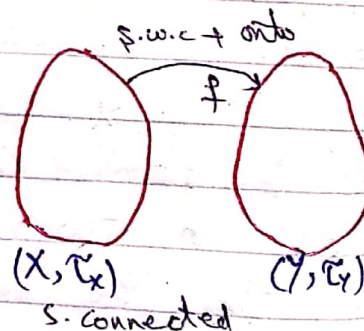 s.w.c + onto
f
(X, τ_X) (Y, τ_Y)
s. connected